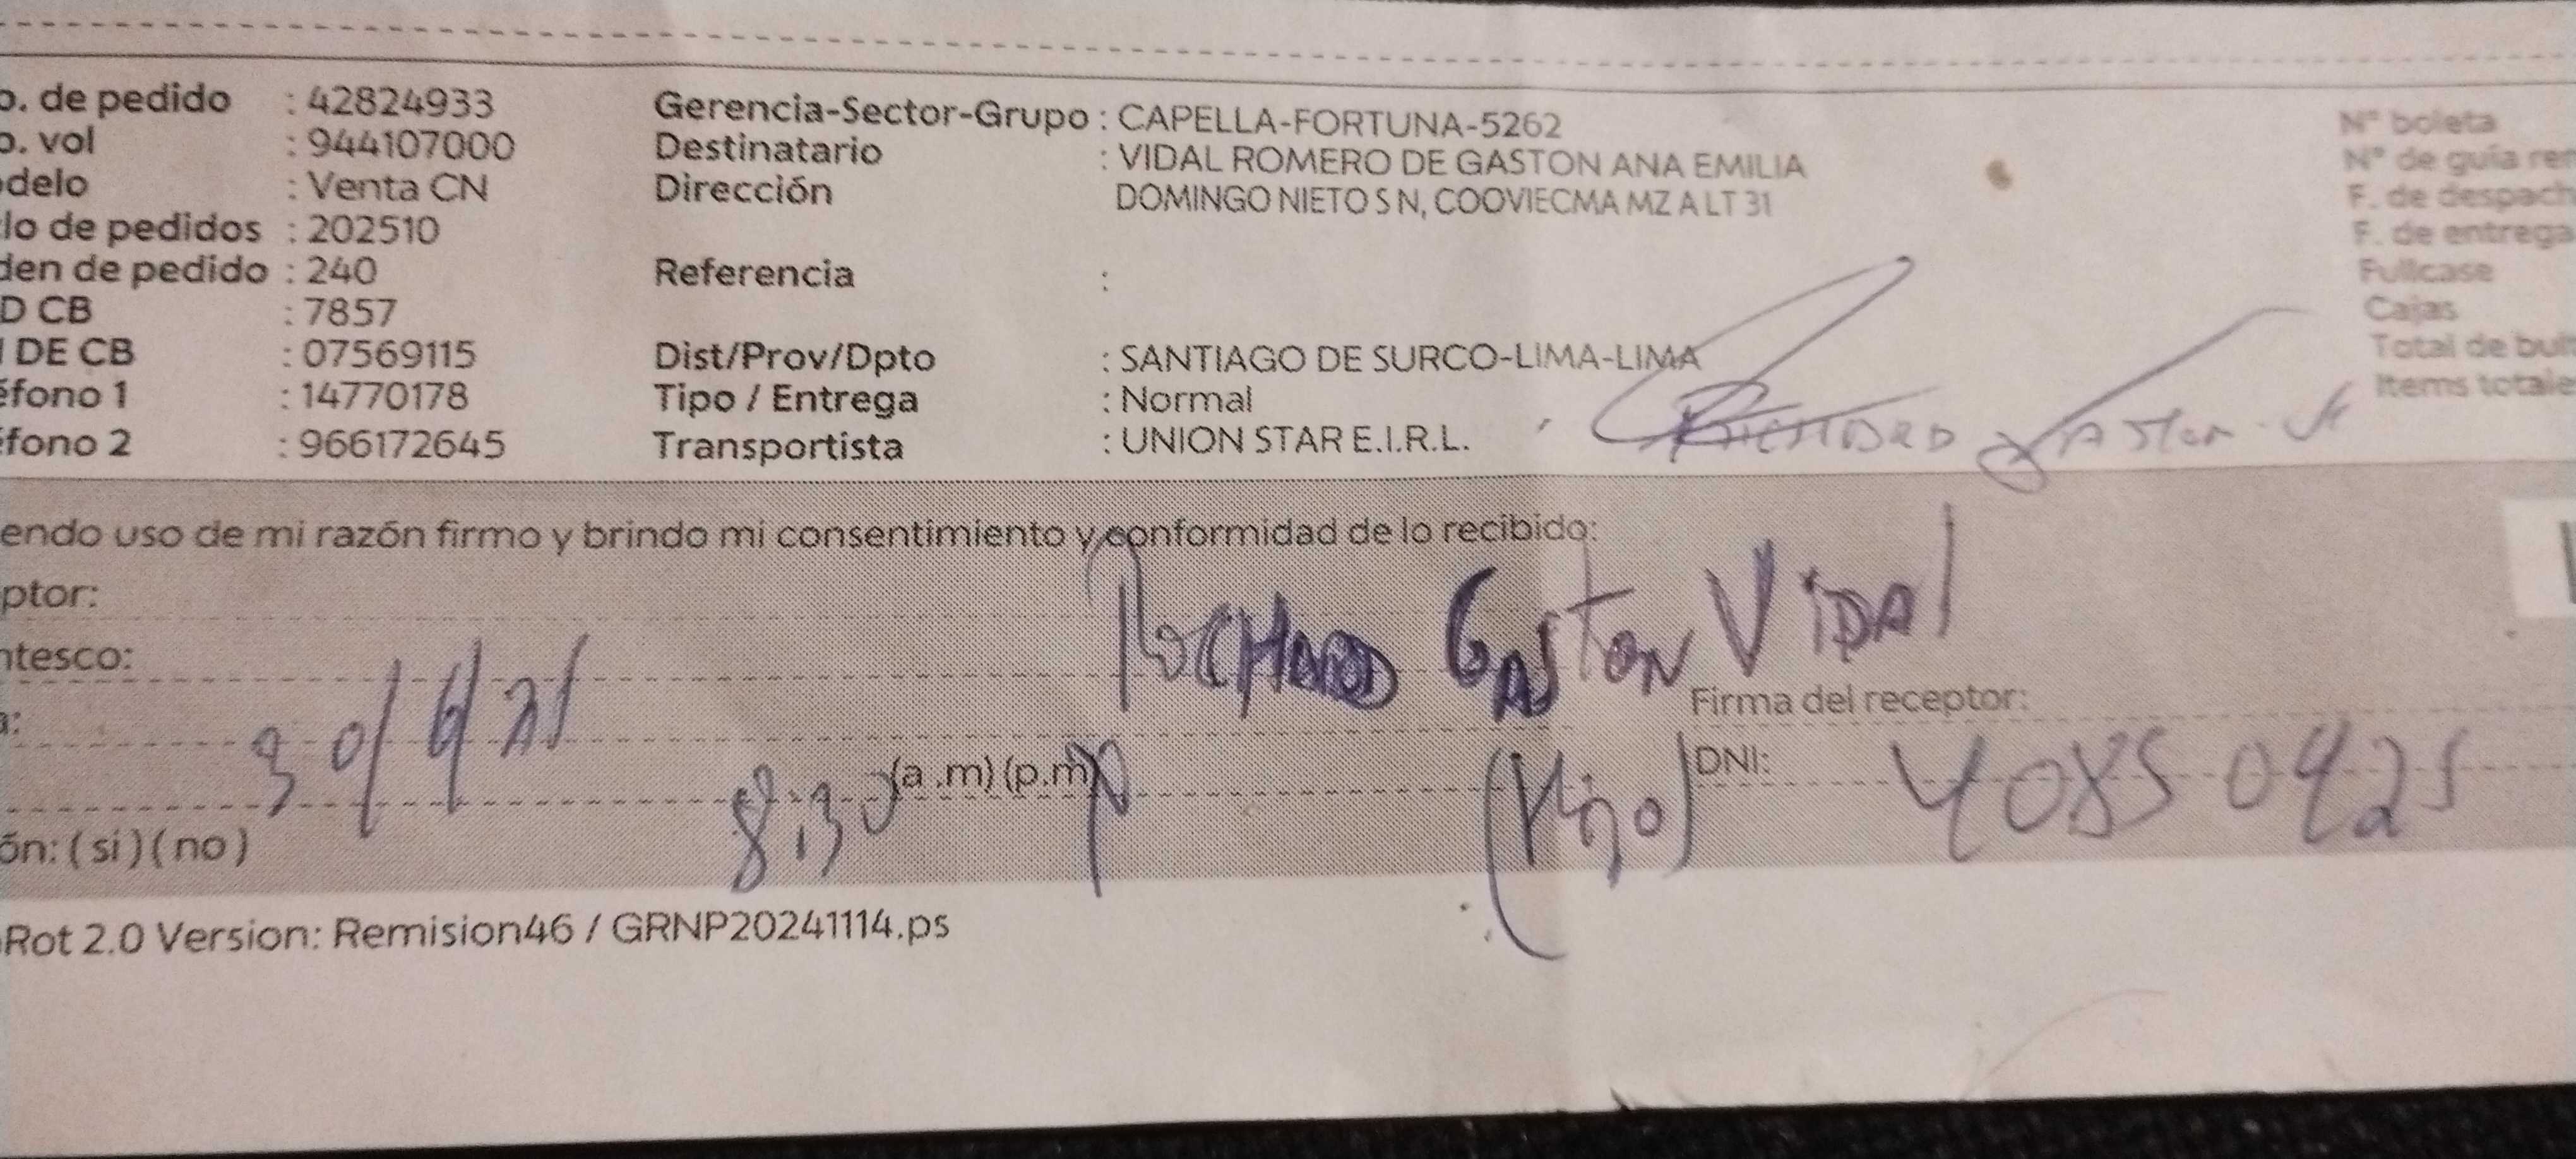 o. de pedido : 42824933 Gerencia-Sector-Grupo : CAPELLA-FORTUNA-5262 N° boleta
o. vol : 944107000 Destinatario : VIDAL ROMERO DE GASTON ANA EMILIA N° de guía rem
delo : Venta CN Dirección DOMINGO NIETO S N, COOVIECMA MZ A LT 31 F. de despach
lo de pedidos : 202510 F. de entrega
den de pedido : 240 Referencia : Fullcase
D CB : 7857 Cajas
DE CB : 07569115 Dist/Prov/Dpto : SANTIAGO DE SURCO-LIMA-LIMA Total de bul
éfono 1 : 14770178 Tipo / Entrega : Normal Items totale
éfono 2 : 966172645 Transportista : UNION STAR E.I.R.L.
endo uso de mi razón firmo y brindo mi consentimiento y conformidad de lo recibido:
ptor: Gaston Vidal
ntesco:
Firma del receptor:
a: 30/6/25
8:30 (a .m) (p.m) (Hijo) DNI: 40850425
ón: ( si ) ( no )
Rot 2.0 Version: Remision46 / GRNP20241114.ps